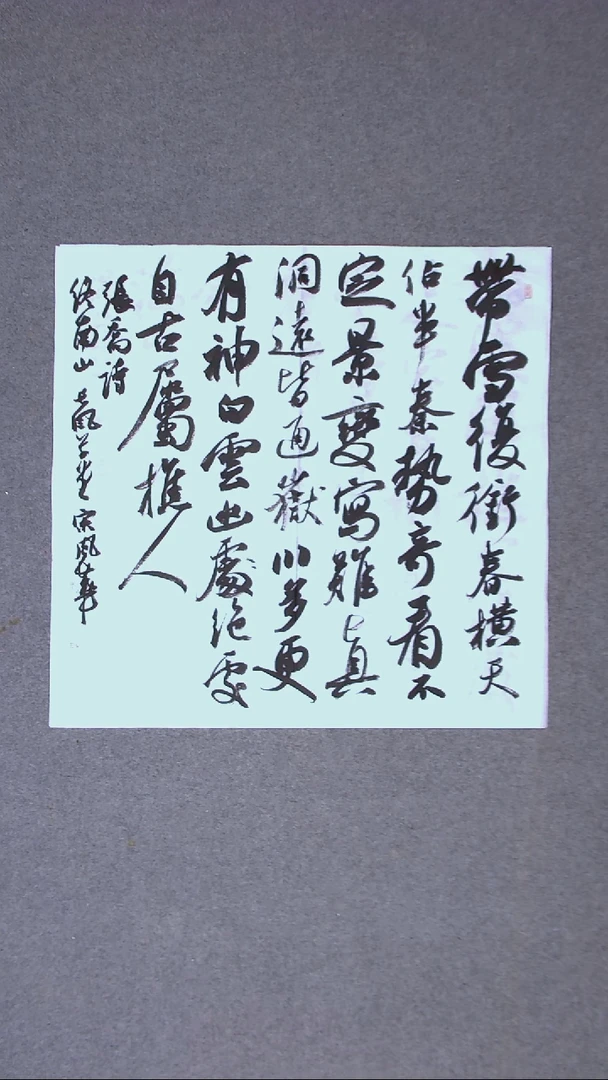 帶雪復銜春橫天
佔半秦勢奇看不
定景變寫難真
洞遠皆通嶽川多更
有神白雲幽處絕處
自古屬樵人
張喬詩
終南山 草堂 宋風